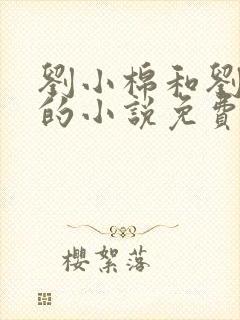 劉小棉和劉
的小說免費
櫻絮落